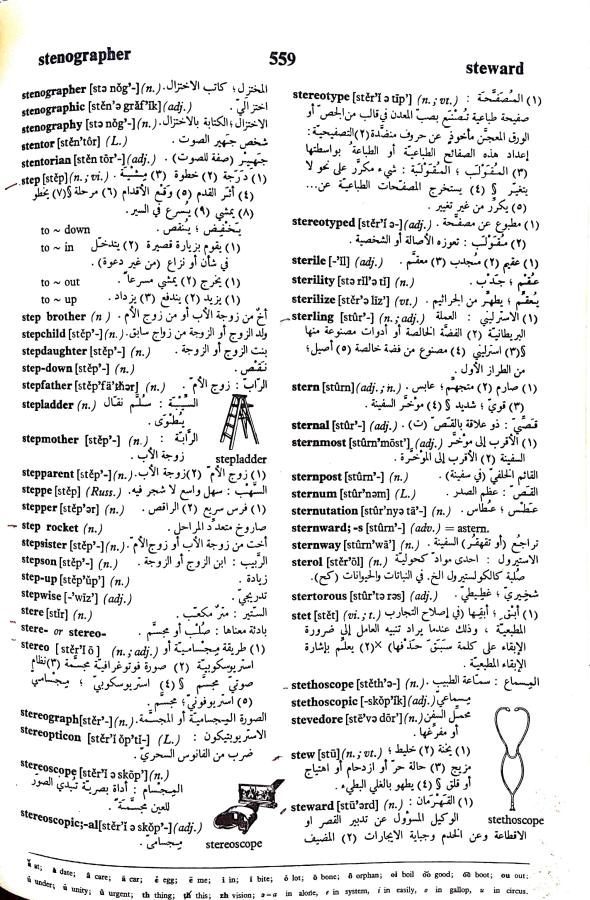 stenographer
559
steward
stenographer [stə nŏg'-] (n.) المختزل ؛ كاتب الاختزال .
stenographic [stĕn'ə grăf'ĭk] (adj.) اختزاليّ .
stenography [stə nŏg'-] (n.) الاختزال ؛ الكتابة بالاختزال .
stentor [stĕn'tôr] (L.) شخص جَهير الصوت .
stentorian [stĕn tôr'-] (adj.) جَهير (صفة للصوت) .
step [stĕp] (n.; vi.) (١) دَرَجة (٢) خطوة (٣) مِشْيَة
(٤) أثَر القدم (٥) وَقْع الأقدام (٦) مرحلة §(٧) يخطو
(٨) يمشي (٩) يُسرع في السير .
to ~ down يَخْفِض ؛ يُنقص .
to ~ in (١) يقوم بزيارة قصيرة (٢) يتدخّل
في شأن أو نزاع (من غير دعوة) .
to ~ out (١) يخرج (٢) يمشي مسرعاً .
to ~ up (١) يزيد (٢) يندفع (٣) يزداد .
step brother (n.) أخٌ من زوج الأب أو من زوج الأم .
stepchild [stĕp'-] (n.) ولد الزوج أو الزوجة من زواج سابق .
stepdaughter [stĕp'-] (n.) بنت الزوج أو الزوجة .
step-down [stĕp'-] (n.) نَقْص .
stepfather [stĕp'fä'thər] (n.) الرّابّ : زوج الأمّ .
stepladder (n.) السِّيْبَة : سُلَّم نقّال
يُطْوَى .
stepmother [stĕp'-] (n.) الرّابَّة :
زوجة الأب .
stepladder
stepparent [stĕp'-] (n.) (١) زوج الأمّ (٢) زوجة الأب .
steppe [stĕp] (Russ.) السَّهْب : سهل واسع لا شجر فيه .
stepper [stĕp'ər] (n.) (١) فرس سريع (٢) الراقص .
step rocket (n.) صاروخ متعدّد المراحل .
stepsister [stĕp'-] (n.) أخت من زوج الأب أو زوج الأم .
stepson [stĕp'-] (n.) الرَّبيب : ابن الزوج أو الزوجة .
step-up [stĕp'ŭp'] (n.) زيادة .
stepwise [-'wīz'] (adj.) تدريجيّ .
stere [stĭr] (n.) السّتير : متر مكعّب .
stere- or stereo- بادئة معناها : صُلْب أو مجسَّم .
stereo [stĕr'ĭ ō] (n.; adj.) (١) طريقة مِجساميّة أو
استريوسكوبيّة (٢) صورة فوتوغرافية مجسَّمة (٣) نظام
صوتيّ مجسَّم §(٤) استريوسكوبيّ ؛ مِجْساميّ
(٥) استريوفونيّ ؛ مجسَّم .
stereograph [stĕr'-] (n.) الصورة المِجساميّة أو المجسَّمة .
stereopticon [stĕr'ĭ ŏp'tĭ-] (L.) الاستريوبتيكون :
ضرب من الفانوس السحري .
stereoscope [stĕr'ĭ ə skōp'] (n.)
المِجْسام : أداة بصريّة تُبدي الصور
للعين مجسَّمةً .
stereoscopic; -al [stĕr'ĭ ə skŏp'-] (adj.)
مِجساميّ .
stereoscope
stereotype [stĕr'ĭ ə tīp'] (n.; vt.) (١) المُصَفَّحَة :
صفيحة طباعية تُصْنَع بصبّ المعدن في قالب من الجصّ أو
الورق المعجّن مأخوذ عن حروف منضَّدة (٢) التصفيحيّة :
إعداد هذه الصفائح الطباعيّة أو الطباعة بواسطتها
(٣) المُقَوْلَب ؛ المُقَوْلَبَة : شيء مكرَّر على نحو لا
يتغيّر §(٤) يستخرج المصفّحات الطباعيّة عن...
(٥) يكرّر من غير تغيير .
stereotyped [stĕr'ĭ ə-] (adj.) (١) مطبوع عن مصفّحة .
(٢) مُقَوْلَب : تعوزه الأصالة أو الشخصية .
sterile [-'ĭl] (adj.) (١) عقيم (٢) مُجدب (٣) معقَّم .
sterility [stə rĭl'ə tĭ] (n.) عُقْم ؛ جَدْب .
sterilize [stĕr'ə līz'] (vt.) يُعقِّم ؛ يطهّر من الجراثيم .
sterling [stûr'-] (n.; adj.) (١) الاسترليني : العملة
البريطانيّة (٢) الفضّة الخالصة أو أدوات مصنوعة منها
§(٣) استرليني (٤) مصنوع من فضة خالصة (٥) أصيل ؛
من الطراز الأول .
stern [stûrn] (adj.; n.) (١) صارم (٢) متجهّم ؛ عابس .
(٣) قويّ ؛ شديد §(٤) مؤخَّر السفينة .
sternal [stûr'-] (adj.) قَصّيّ : ذو علاقة بالقَصّ (ت) .
sternmost [stûrn'mōst'] (adj.) (١) الأقرب إلى مؤخَّر
السفينة (٢) الأقرب إلى المؤخَّرة .
sternpost [stûrn'-] (n.) القائم الخلفي (في سفينة) .
sternum [stûr'nəm] (L.) القَصّ : عظم الصدر .
sternutation [stûr'nyə tā'-] (n.) عَطْس ؛ عُطاس .
sternward; -s [stûrn'-] (adv.) = astern.
sternway [stûrn'wā'] (n.) تراجُع (أو تقهقُر) السفينة .
sterol [stĕr'ōl] (n.) الاستيرول : احدى موادّ كحوليّة
صُلبة كالكولسترول الخ. في النباتات والحيوانات (كح) .
stertorous [stûr'tə rəs] (adj.) شخيريّ ؛ غطيطيّ .
stet [stĕt] (vi.; t.) (١) أَبْقِ ؛ أبقِها (في إصلاح التجارب
المطبعيّة ، وذلك عندما يراد تنبيه العامل إلى ضرورة
الإبقاء على كلمة سَبَقَ حَذْفها) ×(٢) يعلِّم بإشارة
الإبقاء المطبعيّة .
stethoscope [stĕth'ə-] (n.) المِسماع : سمّاعة الطبيب .
stethoscopic [-skŏp'ĭk] (adj.) مِسماعيّ .
stevedore [stē'və dōr'] (n.) محمِّل السفن
أو مفرّغها .
stew [stū] (n.; vt.) (١) يَخْنة (٢) خليط ؛
مزيج (٣) حالة حرّ أو ازدحام أو اهتياج
أو قلق §(٤) يطهو بالغلي البطيء .
steward [stū'ərd] (n.) (١) القَهْرَمان :
الوكيل المسؤول عن تدبير القصر او
الاقطاعة وعن الخدم وجباية الايجارات (٢) المضيف
stethoscope
ă at; ā date; â care; ä car; ĕ egg; ē me; ĭ in; ī bite; ŏ lot; ō bone; ô orphan; oi boil; o͝o good; o͞o boot; ou out;
ŭ under; ū unity; û urgent; th thing; th this; zh vision; ə = a in alone, e in system, i in easily, o in gallop, u in circus.